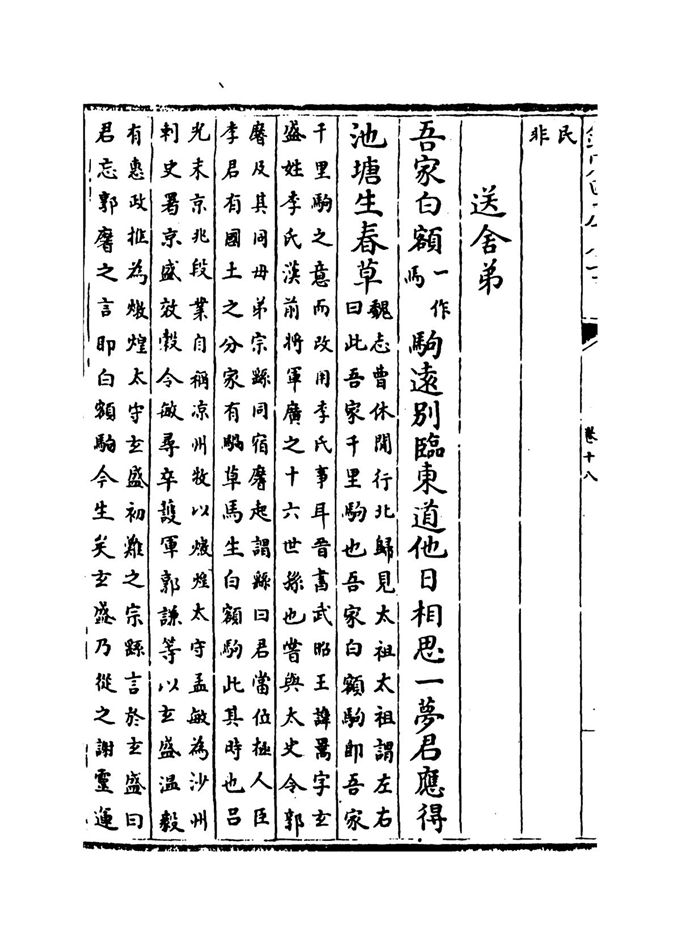 卷十八
民
非
送舍弟
吾家白額一作馬駒遠別臨東道他日相思一夢君應得
池塘生春草魏志曹休閒行北歸見太祖太祖謂左右
曰此吾家千里駒也吾家白額駒即吾家
千里駒之意而改用李氏事耳晉書武昭王諱暠字玄
盛姓李氏漢前將軍廣之十六世孫也嘗與太史令郭
黁及其同母弟宗繇同宿黁起謂繇曰君當位極人臣
李君有國土之分家有騧草馬生白額駒此其時也吕
光末京兆段業自稱凉州牧以燉煌太守孟敏為沙州
刺史署京盛效穀令敏尋卒護軍郭謙等以玄盛温毅
有惠政推為燉煌太守玄盛初難之宗繇言於玄盛曰
君忘郭黁之言即白額駒今生矣玄盛乃從之謝靈運